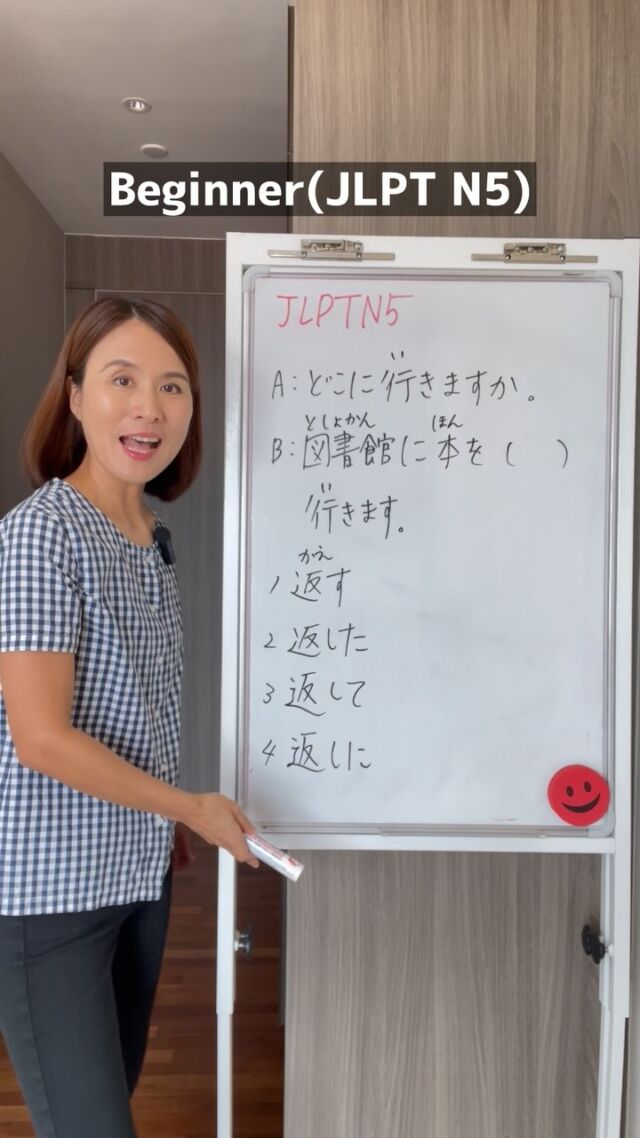 Beginner(JLPT N5)
JLPTN5
い
A:どこに行きますか。
としょかん ほん
B:図書館に本を( )
い
行きます。
かえ
1 返す
2 返した
3 返して
4 返しに